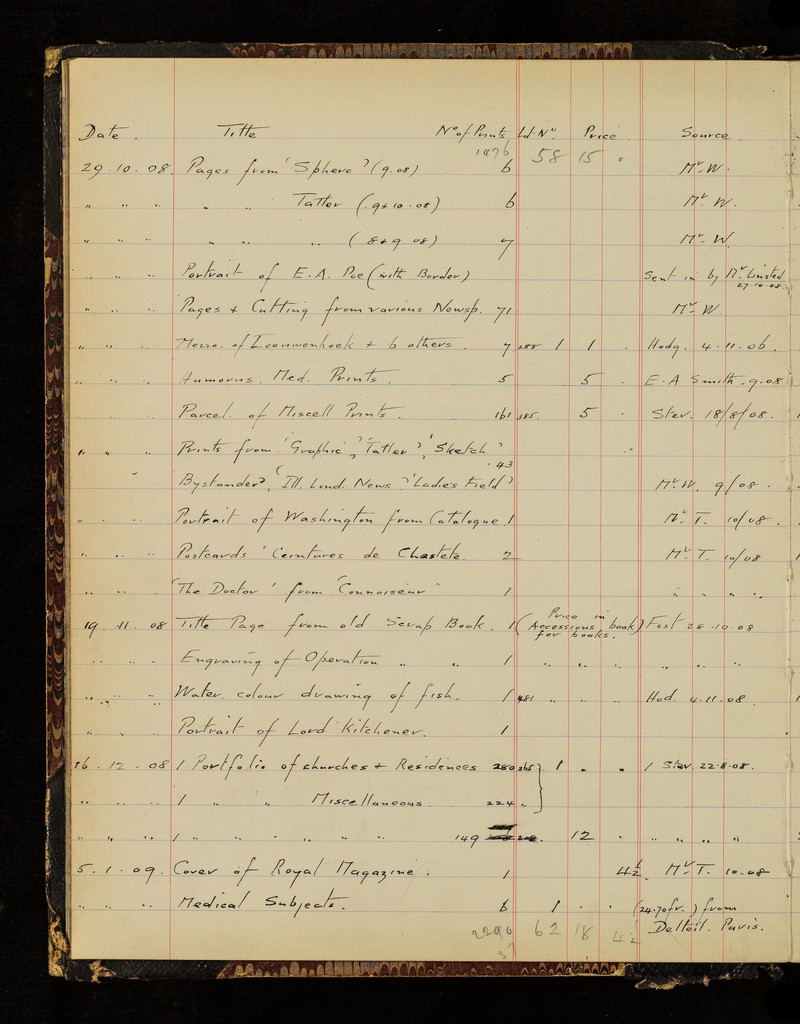 Date. Title No of Prints Lot No. Price. Source.
1476 58 15 "
29.10.08. Pages from 'Sphere' (9.08) 6 Mr. W.
" " " " " Tatler (.9+10.08) 6 Mr. W.
" " " " " " (8+9.08) 7 Mr. W.
" " " Portrait of E.A. Poe (with Border) Sent in by Mr. Linsted
27.10.08.
" " " Pages + Cutting from various Newsp. 71 Mr. W.
" " " Mezzo. of Leeuwenhoek + 6 others. 7 288 1 1 . Hodg. 4.11.06.
" " " Humorus. Med. Prints. 5 5 . E.A Smith. 9.08
" " " Parcel. of Miscell Prints. 161 385. 5 . Stev. 18/8/08.
" " " Prints from 'Graphic', 'Tatler', 'Sketch'
43
Bystander', 'Ill. Lond. News', 'Ladies Field' Mr. W. 9/08.
" " " Portrait of Washington from Catalogue 1 Mr. T. 10/08.
" " " Postcards 'Ceintures de Chastete. 2 Mr. T. 10/08
" " " 'The Doctor' from 'Connoiseur" 1 " " " "
19.11.08 Title Page from old Scrap Book. 1 (Price in Accessions book for books.) Fost 28.10.08
" " " Engraving of Operation " " 1 " " " " " "
" " " Water colour drawing of fish. 1 481 " " " Hod. 4.11.08.
" " " Portrait of Lord Kitchener. 1
16.12.08 1 Portfolio of churches + Residences 280 265 } 1 . . 1 Stev. 22.8.08.
" " " 1 " " Miscellaneous. 224 "
" " " 1 " " " " " " 149 12 . " " " "
5.1.09. Cover of Royal Magazine. 1 4½. Mr. T. 10.08
" " " Medical Subjects. 6 1 . . (24.70fr.) from
2290 62 18 4½ Delteil. Paris.